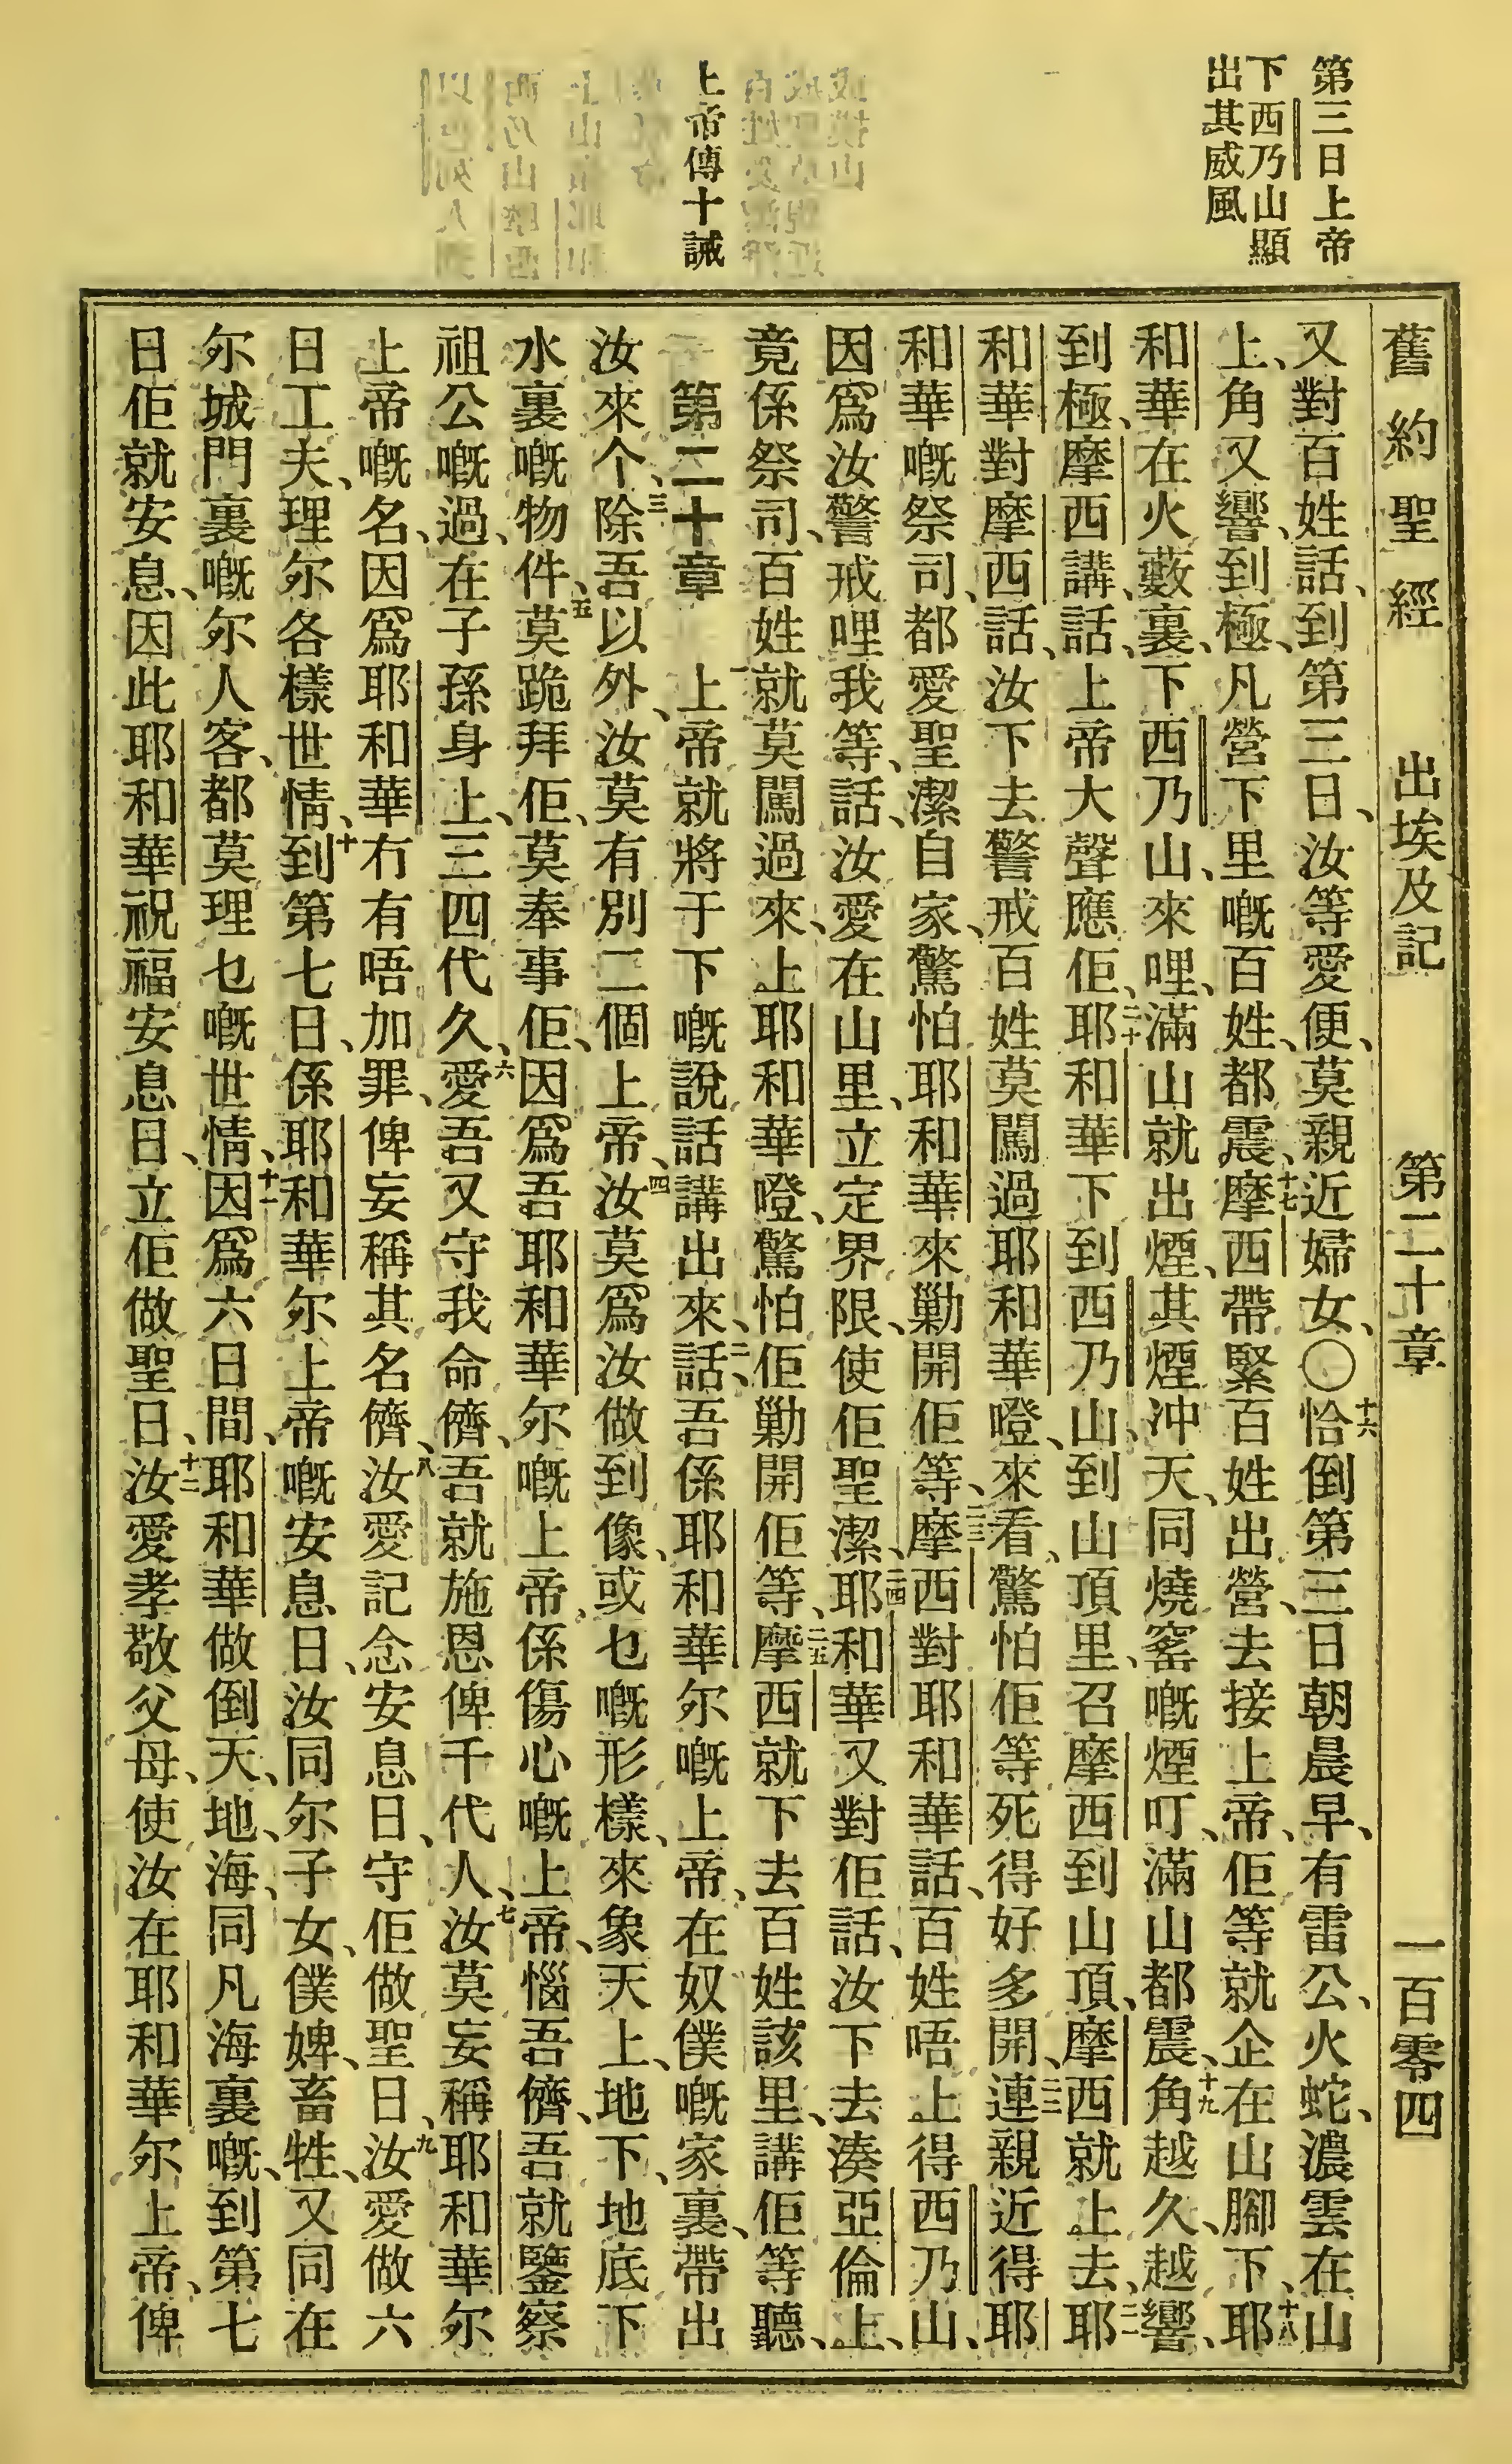 第三日上帝
下西乃山顯
出其威風
上帝傳十誡
舊約聖經　出埃及記　第二十章　一百零四
又對百姓話、到第三日、汝等愛便、莫親近婦女、〇十六恰倒第三日朝晨早、有雷公、火蛇、濃雲在山
上、角又響到極、凡營下里嘅百姓、都震、十七摩西帶緊百姓出營、去接上帝、佢等就企在山腳下、十八耶
和華在火藪裏、下西乃山來哩、滿山就出煙、其煙冲天、同燒窰嘅煙叮、滿山都震、十九角越久、越響、
到極、摩西講話、上帝大聲應佢、二十耶和華下到西乃山、到山頂里、召摩西到山頂、摩西就上去、二一耶
和華對摩西話、汝下去警戒百姓、莫闖過耶和華嶝、來看、驚怕佢等死得好多開、二二連親近得耶
和華嘅祭司、都愛聖潔自家、驚怕耶和華來勦開佢等、二三摩西對耶和華話、百姓唔上得西乃山、
因爲汝警戒哩我等、話、汝愛在山里、立定界限、使佢聖潔、二四耶和華又對佢話、汝下去湊亞倫上、
竟係祭司、百姓就莫闖過來、上耶和華嶝、驚怕佢勦開佢等、二五摩西就下去百姓該里、講佢等聽、
第二十章　一上帝就將于下嘅說話講出來、話、二吾係耶和華尔嘅上帝、在奴僕嘅家裏、帶出
汝來个、三除吾以外、汝莫有別二個上帝、四汝莫爲汝做到像、或乜嘅形樣、來象天上、地下、地底下
水裏嘅物件、五莫跪拜佢、莫奉事佢、因爲吾耶和華尔嘅上帝、係傷心嘅上帝、惱吾儕、吾就鑒察
祖公嘅過、在子孫身上、三四代久、六愛吾又守我命儕、吾就施恩俾千代人、七汝莫妄稱耶和華尔
上帝嘅名、因爲耶和華冇有唔加罪、俾妄稱其名儕、八汝愛記念安息日、守佢做聖日、九汝愛做六
日工夫、理尔各樣世情、十到第七日、係耶和華尔上帝嘅安息日、汝同尔子女、僕婢、畜牲、又同在
尔城門裏嘅尔人客、都莫理乜嘅世情、十一因爲六日間、耶和華做倒天、地、海、同凡海裏嘅、到第七
日佢就安息、因此耶和華祝福安息日、立佢做聖日、十二汝愛孝敬父母、使汝在耶和華尔上帝、俾